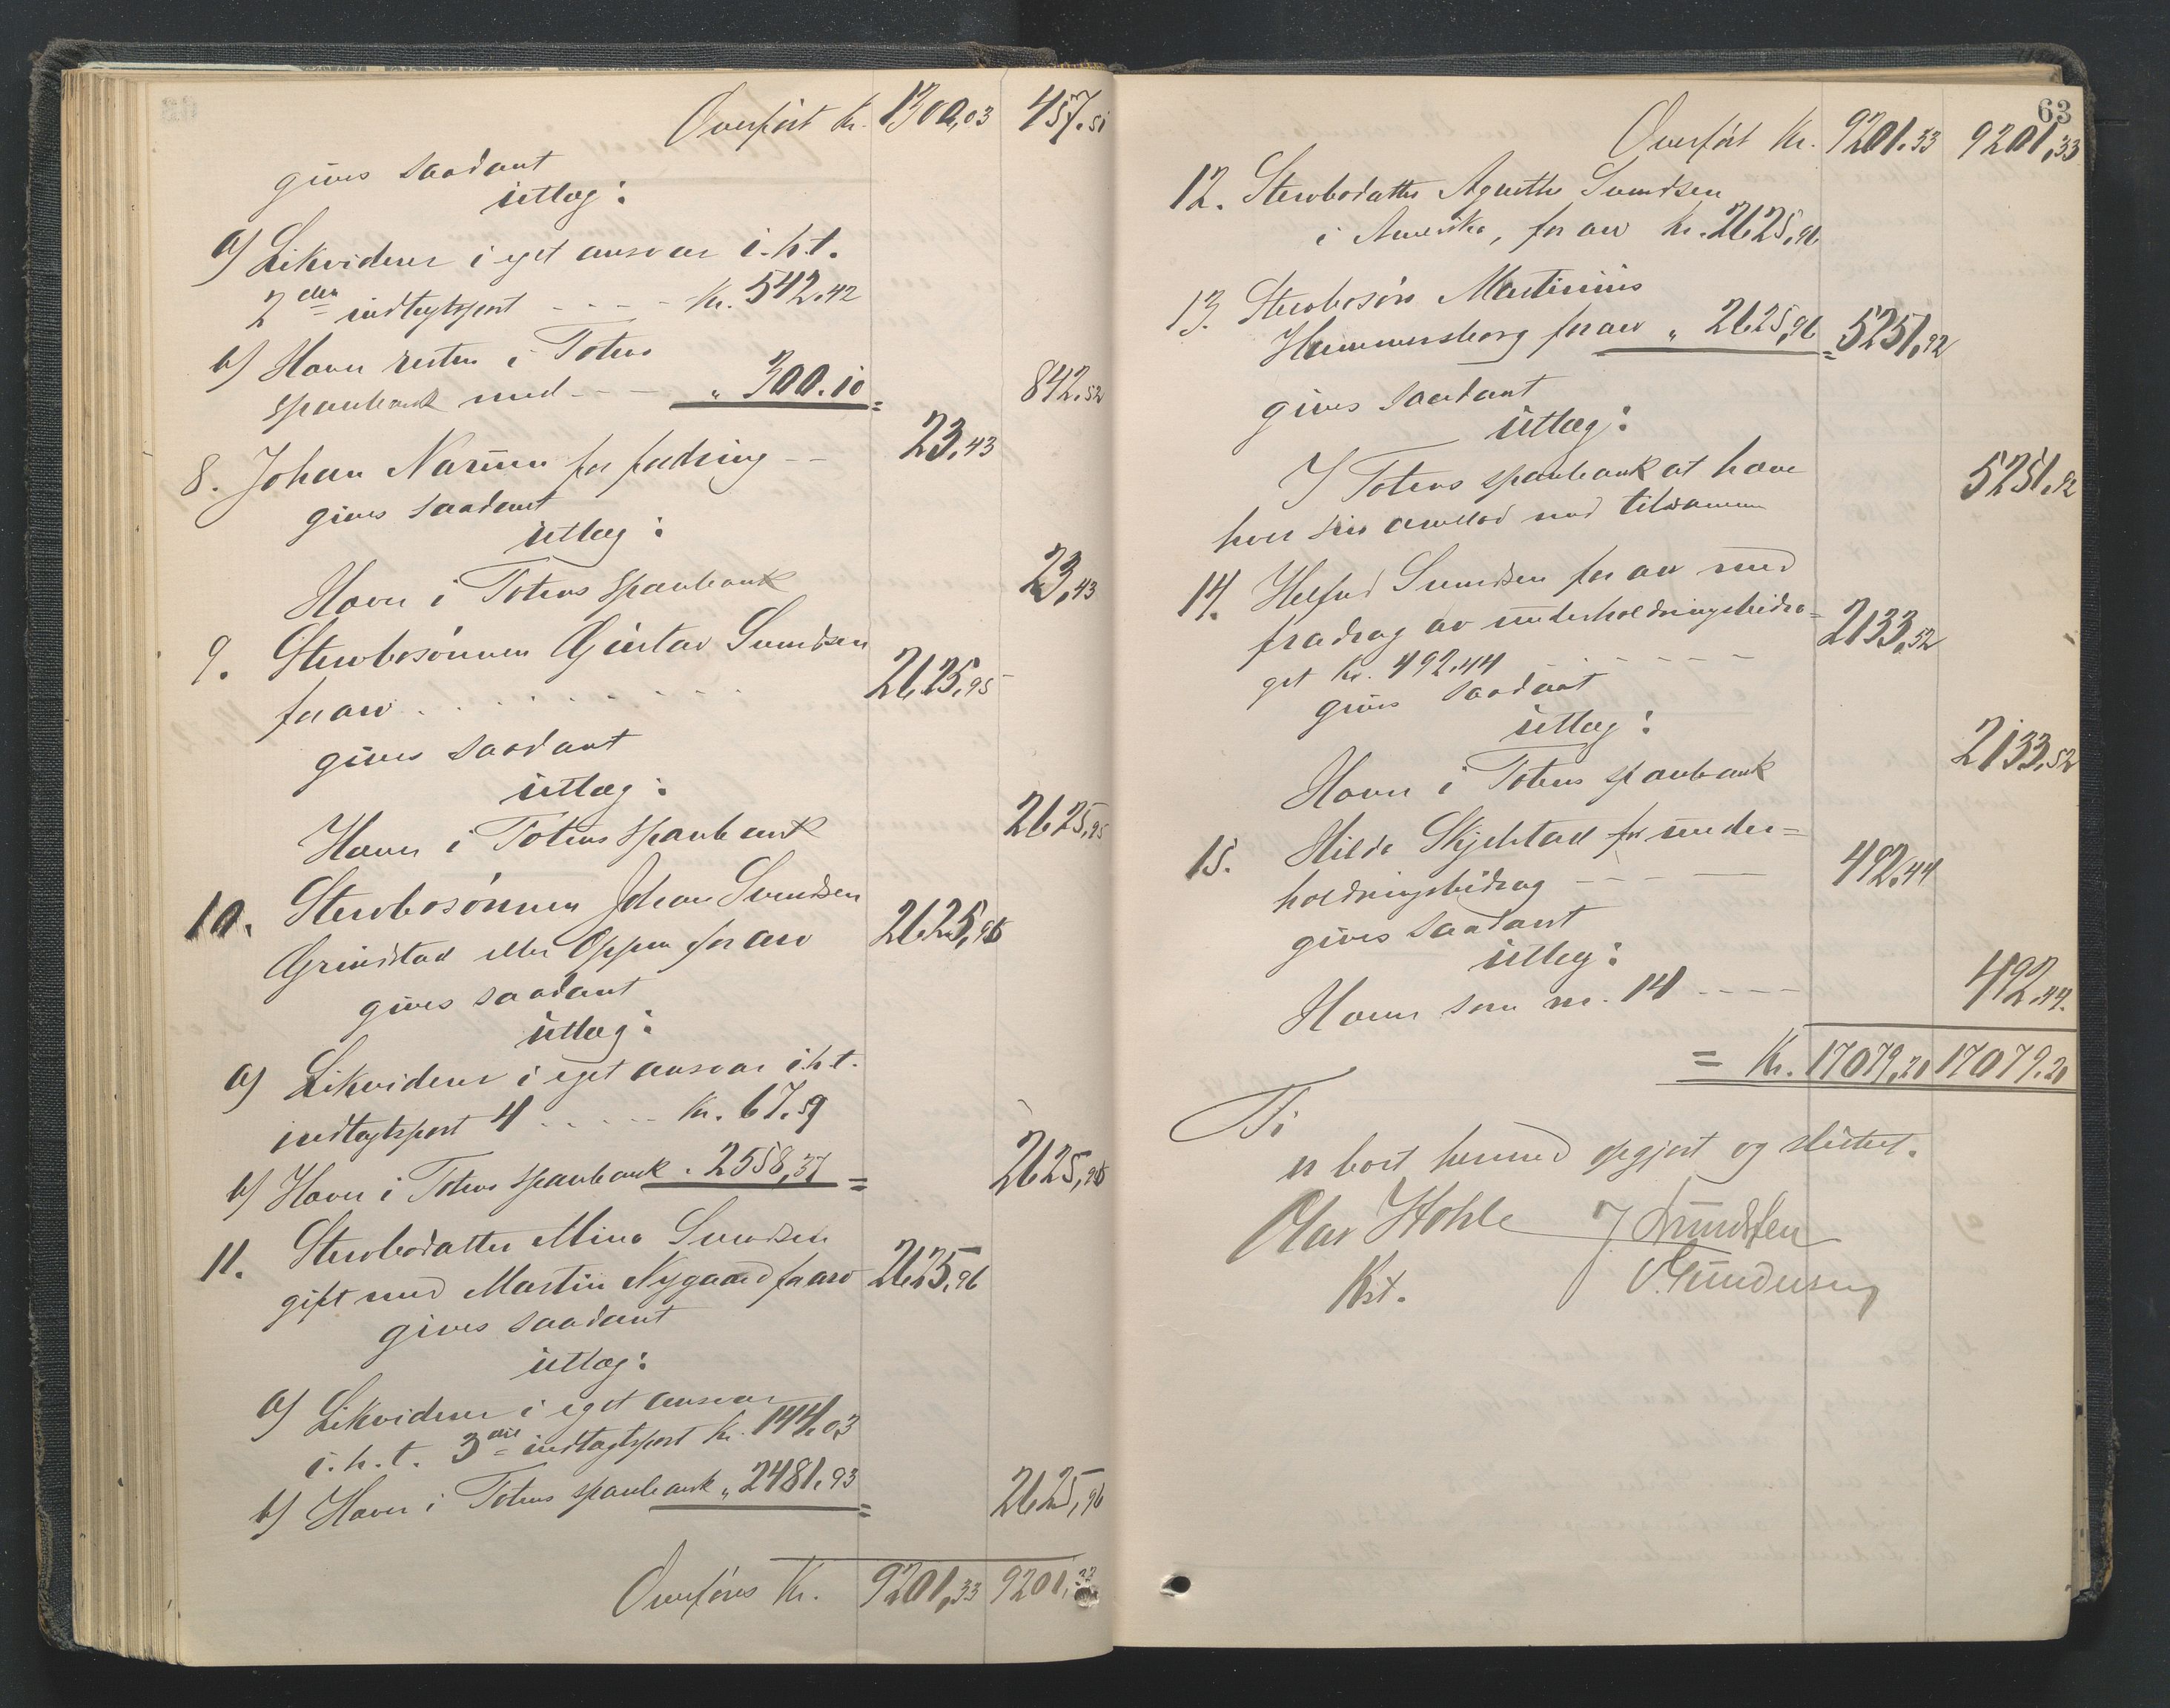 Overført Kr. 1300,03 457.51
gives saadant
utlæg:
a) Likviderer i eget ansvar i.h.t.
2den indtægtspost - - - - Kr. 542.42
b) Haver resten i Totens
sparebank med - - - " 300.10 = 842.52
8. Johan Narum for fodring - - 23,43
gives saadant
utlæg:
Haver i Totens sparebank 23,43
9. Stervbosønnen Gustav Svendsen
for arv . . . . . . . . 2625,95
gives saadant
utlæg:
Haver i Totens sparebank 2625,95
10. Stervbosønnen Johan Svendsen
Grindstad eller Oppen for arv 2625,96
gives saadant
utlæg:
a) Likviderer i eget ansvar i.h.t.
indtægtspost 4 . . . . . Kr. 67.59
b) Haver i Totens sparebank " 2558,37 = 2625,96
11. Stervbodatter Mina Svendsen
gift med Martin Nygaard for arv 2625,96
gives saadant
utlæg:
a) Likviderer i eget ansvar
i.h.t. 3die indtægtspost Kr. 144.03
b) Haver i Totens sparebank " 2481.93 = 2625,96
Overføres Kr. 9201,33 9201,33
63
Overført Kr. 9201.33 9201,33
12. Stervbodatter Agnethe Svendsen
i Amerika, for arv Kr. 2625,96
13. Stervbosøn Martinius
Hammersborg for arv " 2625,96 = 5251,92
gives saadant
utlæg:
I Totens sparebank at have
hver sin arvelod med tilsammen 5251.92
14. Helfred Svendsen for arv med
fradrag av underholdningsbidra=
get Kr. 492.44 - - - - - - 2133,52
gives saadant
utlæg:
Haver i Totens sparebank 2133,52
15. Hilda Skjelstad for under=
holdningsbidrag - - - - 492,44
gives saadant
utlæg:
Haver som nr. 14 - - - - 492,44.
= Kr. 17079,20 17079.20
Ti
er boet hermed opgjort og sluttet.
Olav Stohle J Svendsen
Kst. Gundersen